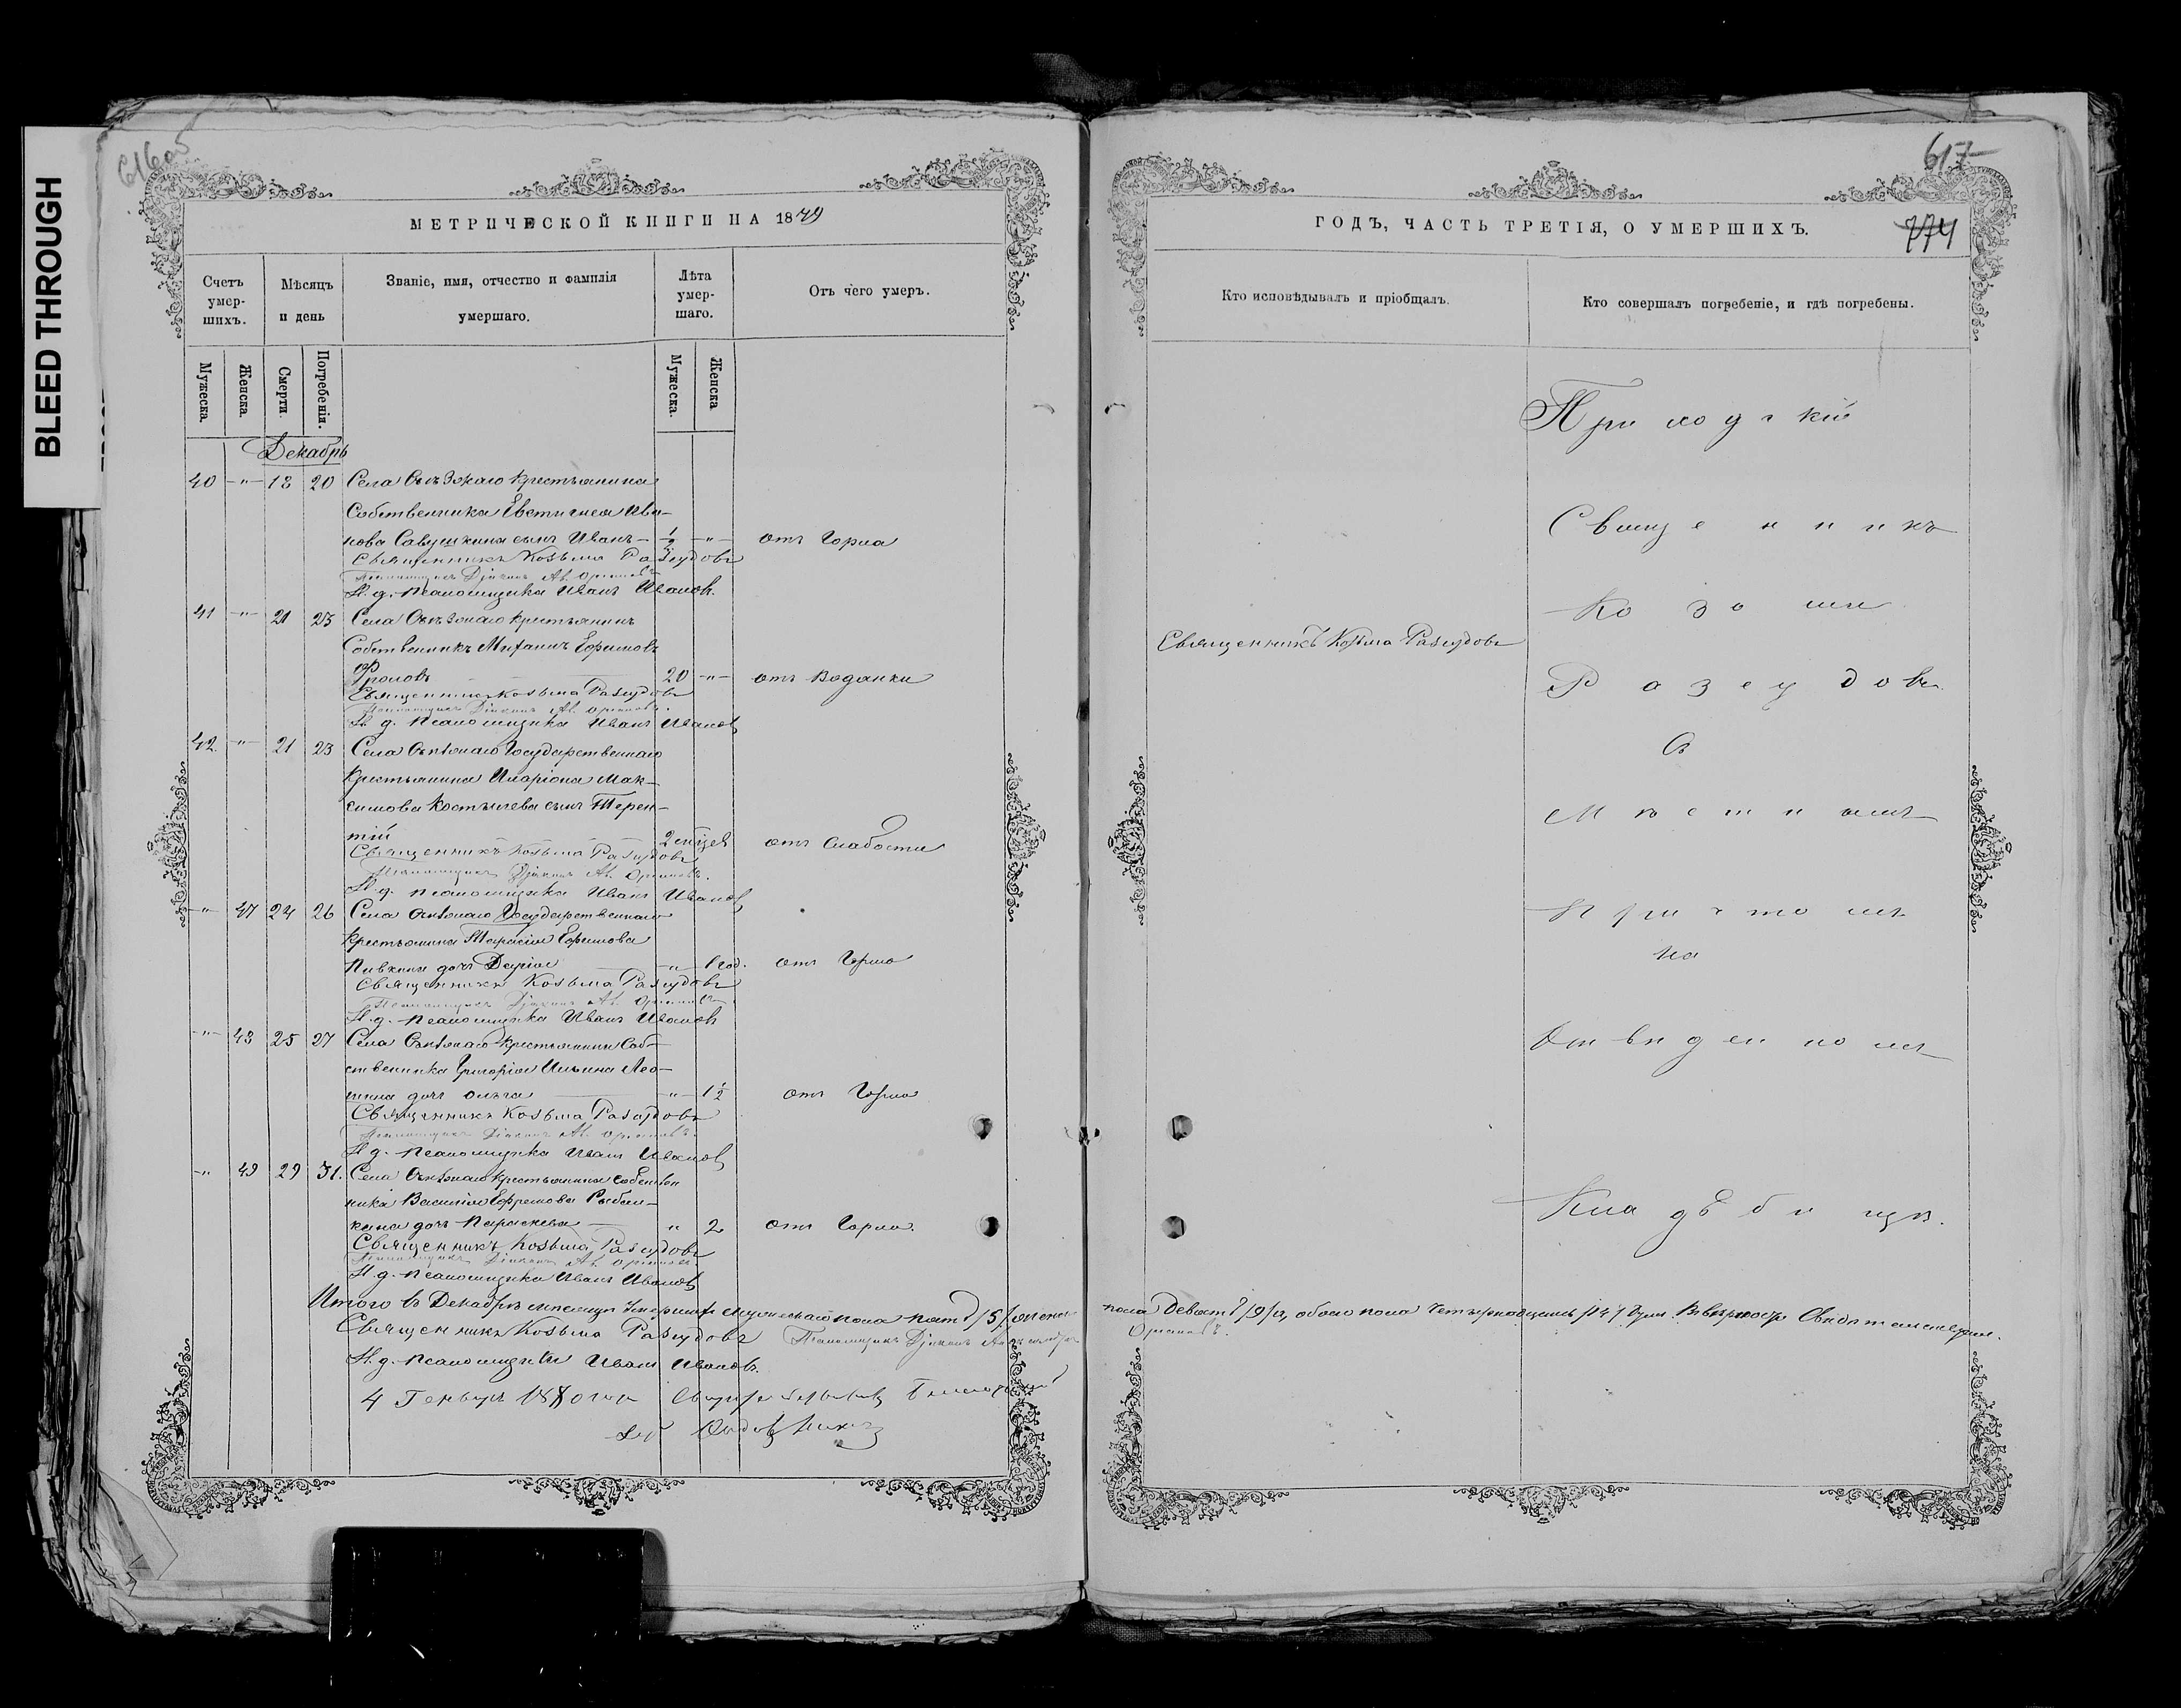 BLEED THROUGH
616об
МЕТРИЧЕСКОЙ КНИГИ НА 1879
Счетъ умер-шихъ.
Мѣсяцъ и день
Званіе, имя, отчество и фамилія умершаго.
Лѣта умер-шаго.
Отъ чего умеръ.
Мужеска.
Женска.
Смерти.
Погребенія.
Мужеска.
Женска
Декабрь
40 -"- 18 20 Села крестьянина
Собственника Евстигнея Ива-
нова Савушкина сынъ Иванъ - 1/2 -"- отъ Горла
Священникъ Козьма Разсудовъ
Псаломщикъ Діаконъ Ал.
И. д. псаломщика Иванъ Ивановъ.
41 -"- 21 23 Села крестьянинъ
Собственникъ Михаилъ Ефимовъ
Фроловъ 20 -"- отъ Водянки
Священникъ Козьма Разсудовъ
Псаломщикъ Діаконъ Ал.
И. д. псаломщика Иванъ Ивановъ
42 -"- 21 23 Села Государственнаго
крестьянина Иларіона Мак-
симова Костычева сынъ Терен-
тій 2 отъ Слабости
Священникъ Козьма Разсудовъ
Псаломщикъ Діаконъ Ал.
И. д. псаломщика Иванъ Ивановъ
-"- 47 24 26 Села Государственнаго
крестьянина Тарасія Ефимова
Пивкина дочь Дарія -"- 1 год. отъ Горла
Священникъ Козьма Разсудовъ
Псаломщикъ Діаконъ Ал.
И. д. псаломщика Иванъ Ивановъ
-"- 48 25 27 Села крестьянина Соб-
ственника Григорія Ильина Лео-
шина дочь Ольга -"- 1 1/2 отъ Горла
Священникъ Козьма Разсудовъ
Псаломщикъ Діаконъ Ал.
И. д. псаломщика Иванъ Ивановъ
-"- 49 29 31. Села крестьянина Собствен
ника Василія Ефремова Рыбал-
кина дочь Параскева " 2 отъ Горла.
Священникъ Козьма Разсудовъ
Псаломщикъ Діаконъ Ал.
И. д. псаломщика Иванъ Ивановъ
Итого въ Декабрѣ мѣсяцѣ умершихъ мужескаго пола пять /5/ женска
Священникъ Козьма Разсудовъ Псаломщикъ Діаконъ
И. д. псаломщика Иванъ Ивановъ.
4 Генваря 1880 года
617
ГОДЪ, ЧАСТЬ ТРЕТІЯ, О УМЕРШИХЪ.
774
Кто исповѣдывалъ и пріобщалъ.
Кто совершалъ погребеніе, и гдѣ погребены.
Приходскій
Священникъ
Козьма
Священникъ Козьма Разсудовъ
Разсудовъ
Съ
Мѣстнымъ
Причтомъ
На
Отведенномъ
Кладбищѣ.
пола Девять /9/ а обоего пола четырнадцать /14/ душъ. Въ вѣрности свидѣтельствуемъ.